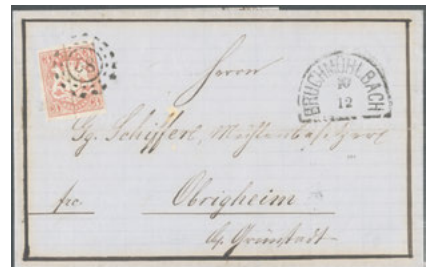 Herrn
BRUCHMÜHLBACH
10
12
Gg. Schifferl, Mühlenbesitzers
frc. Obrigheim
b/ Grünstadt